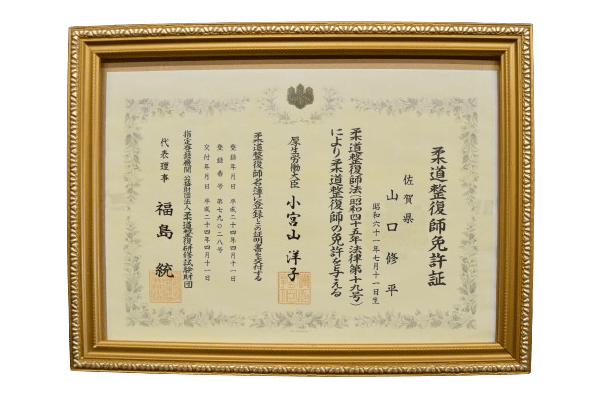 柔道整復師免許証
佐賀県
山口修平
昭和六十一年七月十一日生
柔道整復師法(昭和四十五年法律第十九号)
により柔道整復師の免許を与える
厚生労働大臣 小宮山洋子
柔道整復師名簿に登録したので証明書を交付する
登録年月日 平成二十四年四月十一日
登録番号 第七九〇二八号
交付年月日 平成二十四年四月十一日
指定登録機関 公益財団法人 柔道整復研修試験財団
代表理事 福島統